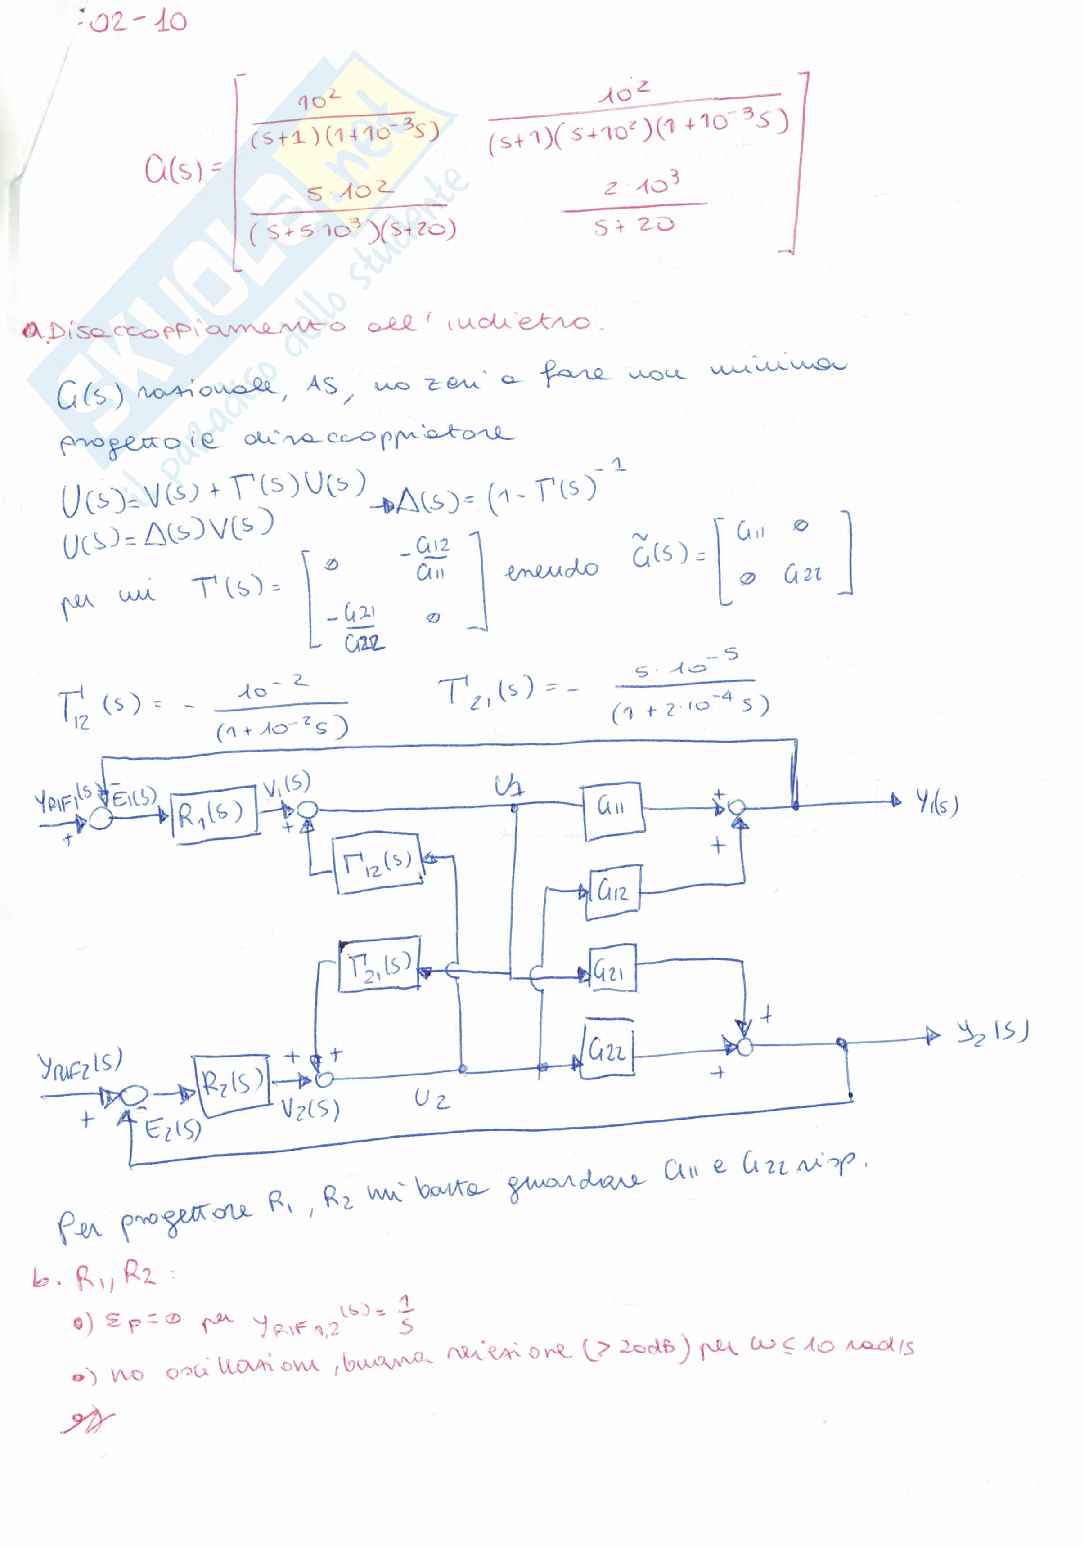 02-10
G(s) = [ 10² / (s+1)(1+10⁻³s)   10² / (s+1)(s+10²)(1+10⁻³s) ]
[ 5·10² / (s+5·10³)(s+20)   2·10³ / s+20 ]
a. Disaccoppiamento all'indietro.
G(s) razionale, AS, no zeri a fase non minima
progetto il disaccoppiatore
U(s) = V(s) + Γ(s)U(s) → Δ(s) = (1 - Γ(s)⁻¹
U(s) = Δ(s)V(s)
per cui Γ(s) = [ 0   -G12/G11 ; -G21/G22   0 ] essendo G̃(s) = [ G11   0 ; 0   G22 ]
Γ12(s) = - 10⁻² / (1+10⁻²s)   Γ21(s) = - 5·10⁻⁵ / (1+2·10⁻⁴s)
YRIF1(s) - E1(s) R1(s) V1(s) U1 G11 + Y1(s)
+ + +
Γ12(s) G12
Γ21(s) G21 +
YRIF2(s) R2(s) + + G22 Y2(s)
+ - E2(s) V2(s) U2 +
Per progettare R1, R2 mi basta guardare G11 e G22 risp.
b. R1, R2 :
•) εp = 0 per YRIF1,2(s) = 1/s
•) no oscillazioni, buona reiezione (> 20dB) per ω ≤ 10 rad/s
SKUOLA.net
il paradiso dello studente